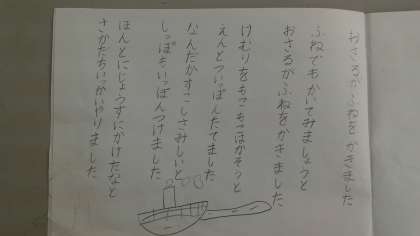 おさるがふねを かきました
ふねでもかいてみましょうと
おさるがふねをかきました
けむりをもこもこはかそうと
えんとついっぽんたてました
なんだかすこしさみしいと
しっぽもいっぽんつけました
ほんとにじょうずにかけたなと
さかだちいっかいやりました